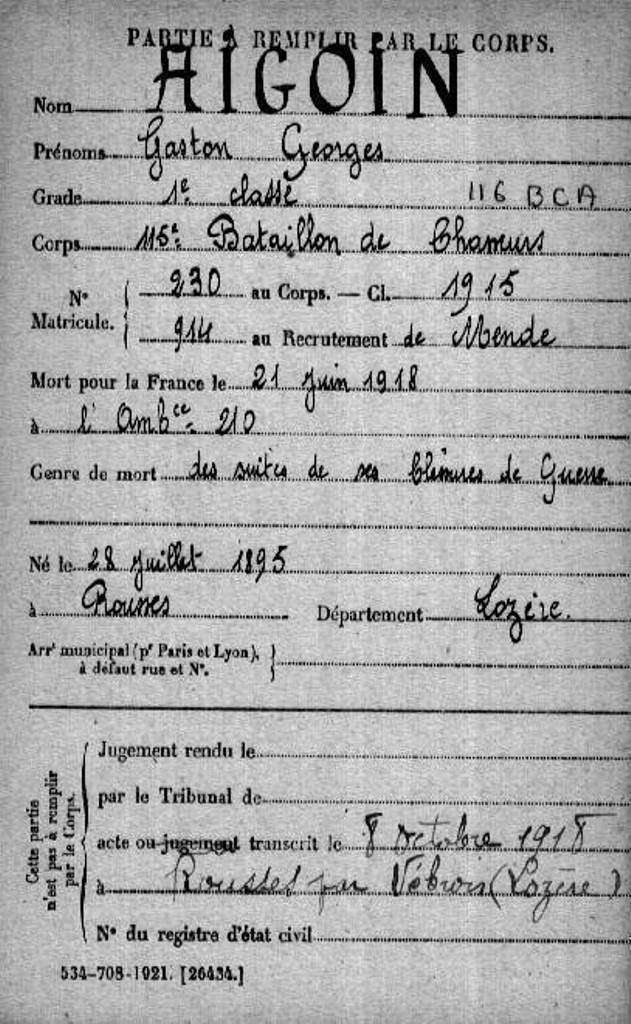 PARTIE À REMPLIR PAR LE CORPS.
Nom AIGOIN
Prénoms Gaston Georges
Grade 1e classe 116 BCA
Corps 115e Bataillon de Chasseurs
N° Matricule. 230 au Corps. — Cl. 1915
914 au Recrutement de Mende
Mort pour la France le 21 Juin 1918
à l'Ambce 210
Genre de mort des suites de ses blessures de Guerre
Né le 28 Juillet 1895
à Rousses Département Lozère.
Arrt municipal (pr Paris et Lyon),
à défaut rue et N°.
Cette partie n'est pas à remplir par le Corps.
Jugement rendu le
par le Tribunal de
acte ou jugement transcrit le 8 Octobre 1918
à par (Lozère)
N° du registre d'état civil
534-708-1921. [26434.]